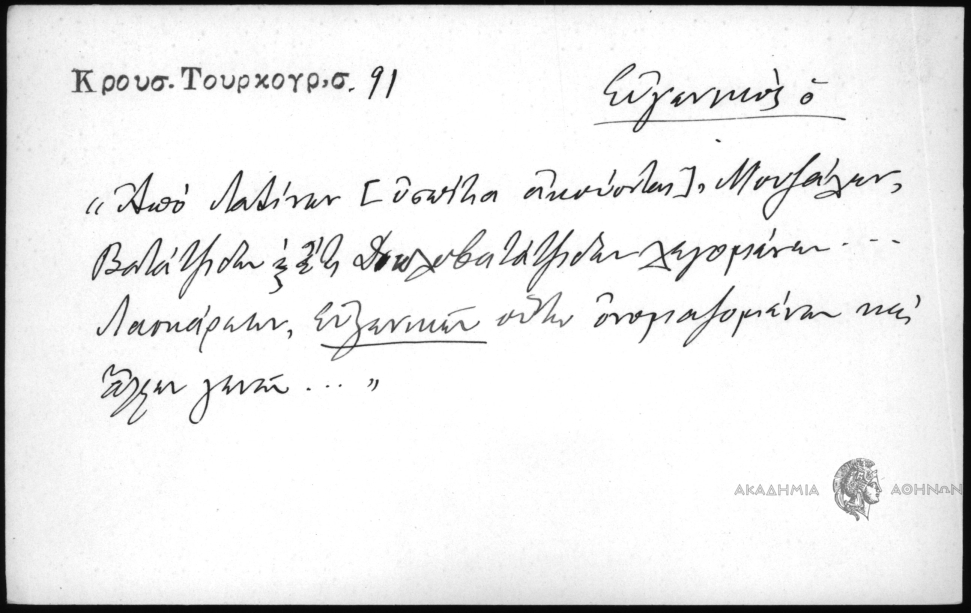 Κρουσ. Τουρκογρ, σ. 91
Εὐγενικὸς ὁ
"Ἀπὸ Λατίνων [ὀσπίτια ἀκούονται], Μουζάλων,
Βατάτζιδων ἐξ Διπλοβατάτζιδων λεγομένων ...
Λασκάρεων, Εὐγενικῶν οὕτω ὀνομαζομένων καὶ
ἄλλων γενῶν ... "
ΑΚΑΔΗΜΙΑ ΑΘΗΝΩΝ